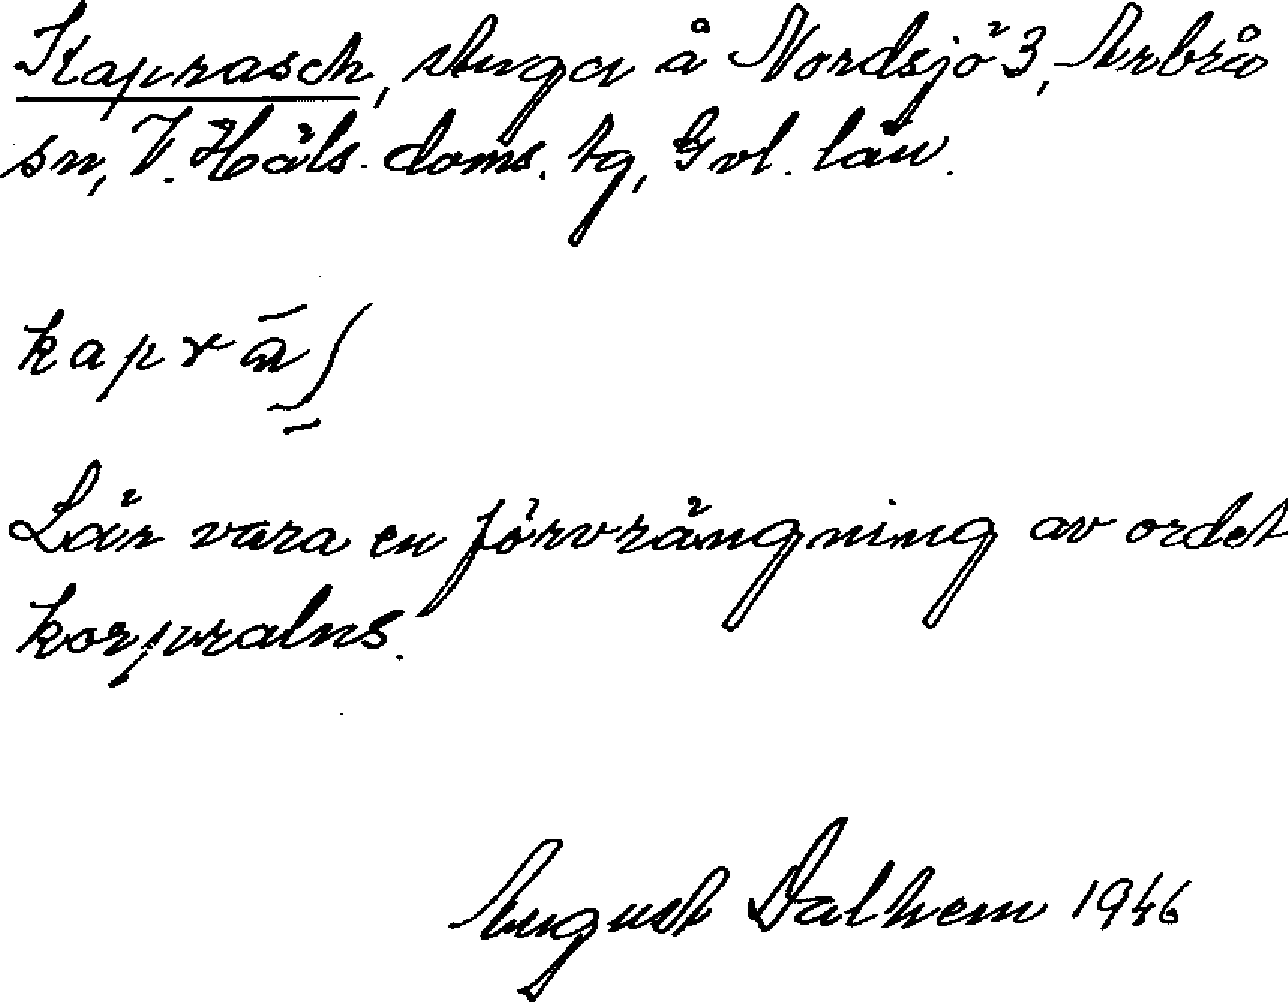 Kaprasch, stuga å Nordsjö 3, Arbrå
sn, V. Häls. doms. tg, Gvl. län.
kaprāʃ
Lär vara en förvrängning av ordet
korpralns.
August Dalhem 1946